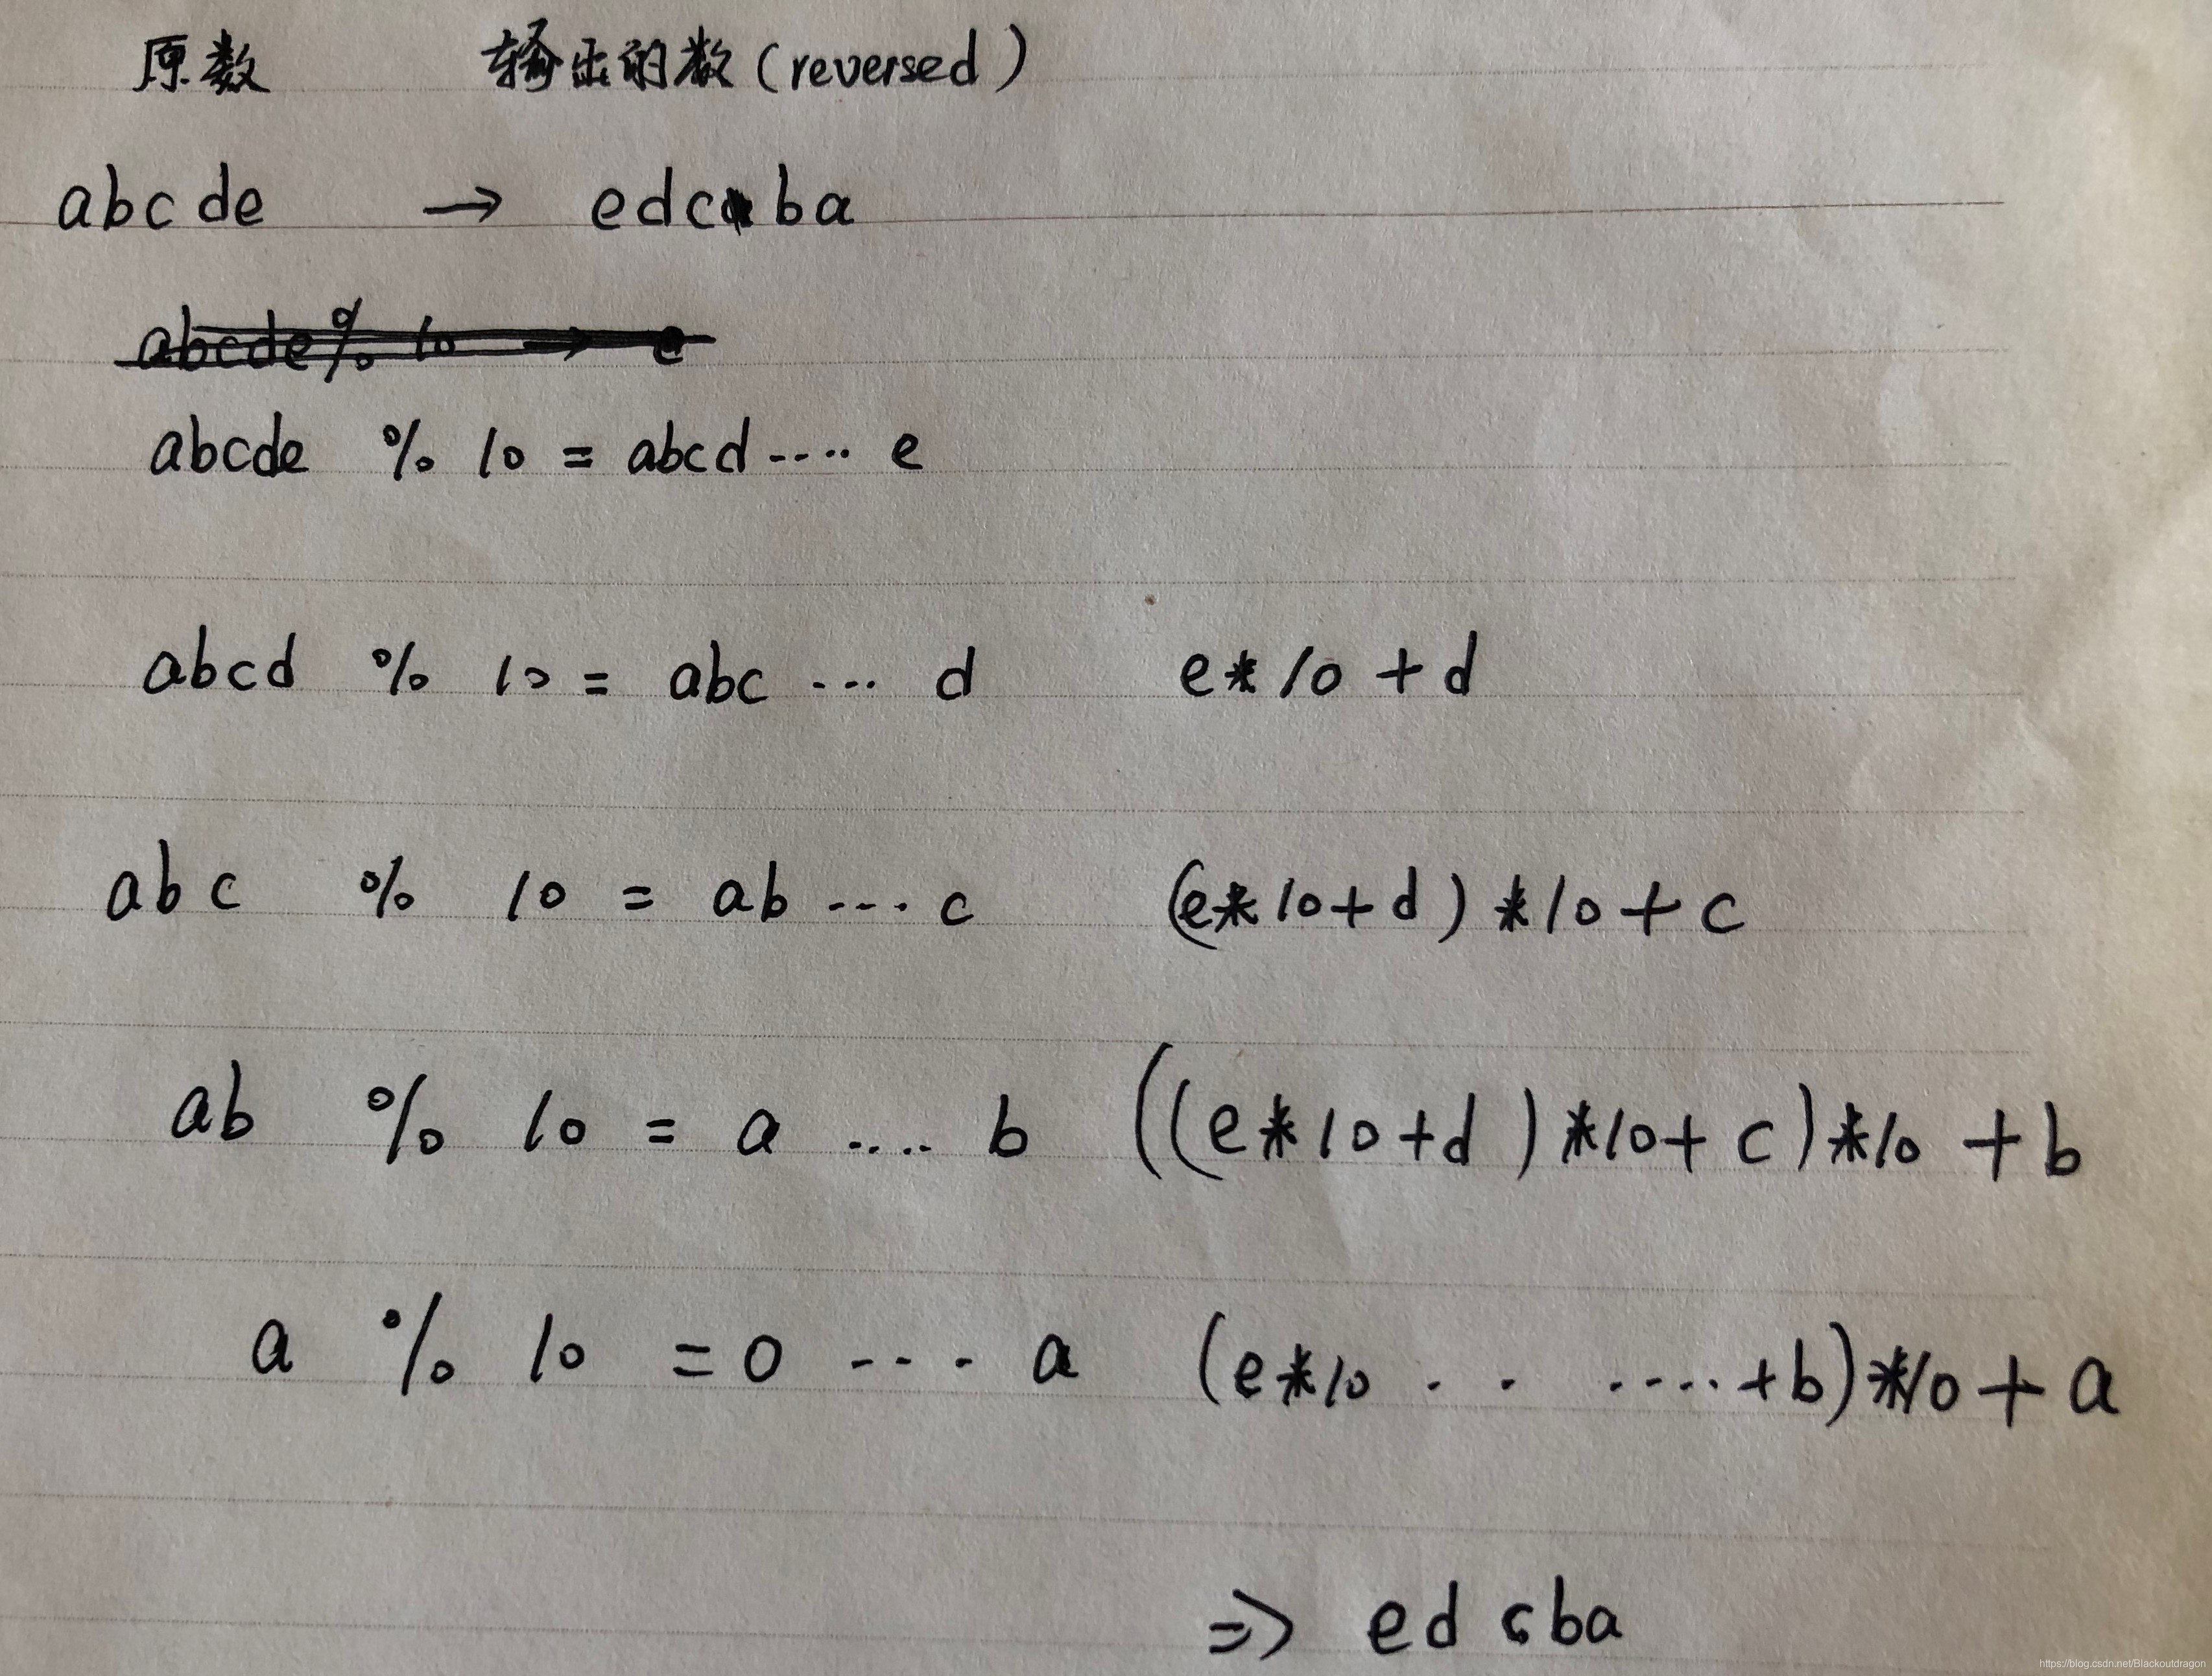 原数 输出的数(reversed)
abcde → edcba
abcde % 10 → e
abcde % 10 = abcd ····· e
abcd % 10 = abc ··· d e*10+d
abc % 10 = ab ···· c (e*10+d)*10+c
ab % 10 = a ···· b ((e*10+d)*10+c)*10+b
a % 10 = 0 ···· a (e*10 · · ····+b)*10+a
=> edcba
https://blog.csdn.net/Blackoutdragon